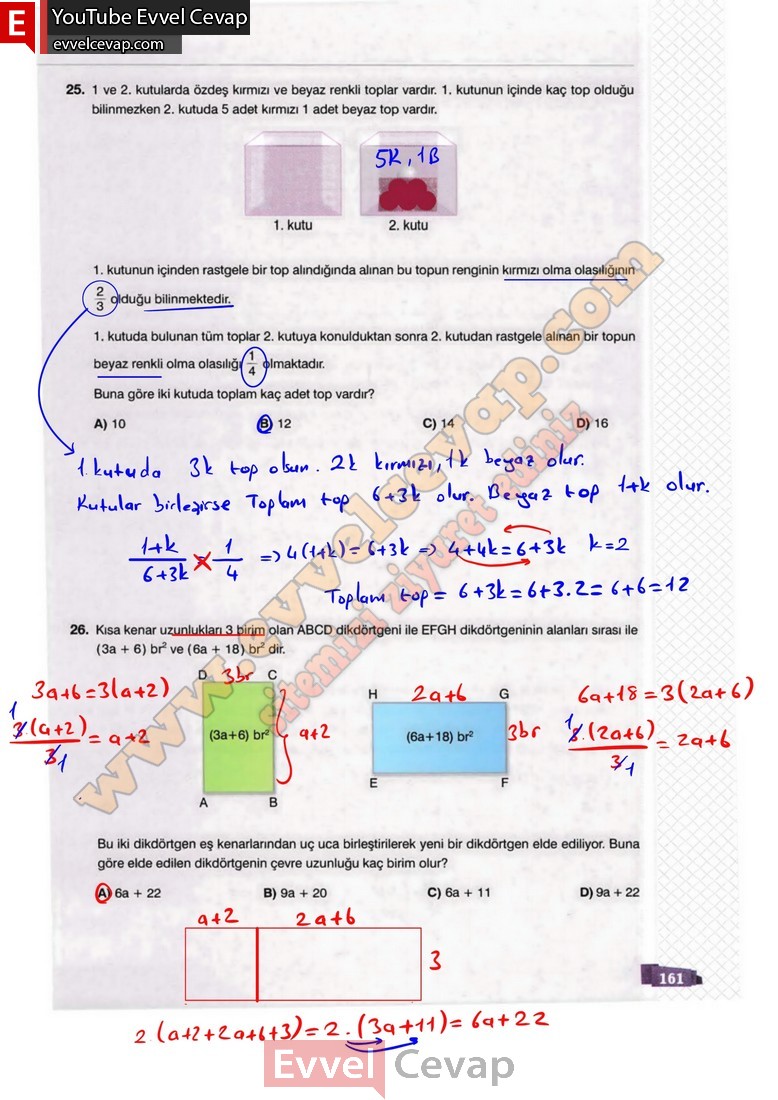 E YouTube Evvel Cevap
evvelcevap.com
25. 1 ve 2. kutularda özdeş kırmızı ve beyaz renkli toplar vardır. 1. kutunun içinde kaç top olduğu
bilinmezken 2. kutuda 5 adet kırmızı 1 adet beyaz top vardır.
5K, 1B
1. kutu 2. kutu
1. kutunun içinden rastgele bir top alındığında alınan bu topun renginin kırmızı olma olasılığının
2/3 olduğu bilinmektedir.
1. kutuda bulunan tüm toplar 2. kutuya konulduktan sonra 2. kutudan rastgele alınan bir topun
beyaz renkli olma olasılığı 1/4 olmaktadır.
Buna göre iki kutuda toplam kaç adet top vardır?
A) 10 B) 12 C) 14 D) 16
1. kutuda 3k top olsun. 2k kırmızı, 1k beyaz olur.
Kutular birleşirse Toplam top 6+3k olur. Beyaz top 1+k olur.
1+k/6+3k = 1/4 => 4(1+k) = 6+3k => 4+4k = 6+3k k=2
Toplam top = 6+3k = 6+3.2 = 6+6 = 12
26. Kısa kenar uzunlukları 3 birim olan ABCD dikdörtgeni ile EFGH dikdörtgeninin alanları sırası ile
(3a + 6) br² ve (6a + 18) br² dir.
D 3br C
3a+6 = 3(a+2)
H 2a+6 G
6a+18 = 3(2a+6)
1
3.(a+2)/3 = a+2
1
(3a+6) br² a+2
(6a+18) br² 3br
1
3.(2a+6)/3 = 2a+6
1
A B
E F
Bu iki dikdörtgen eş kenarlarından uç uca birleştirilerek yeni bir dikdörtgen elde ediliyor. Buna
göre elde edilen dikdörtgenin çevre uzunluğu kaç birim olur?
A) 6a + 22 B) 9a + 20 C) 6a + 11 D) 9a + 22
a+2 2a+6
3
161
2.(a+2+2a+6+3) = 2.(3a+11) = 6a+22
Evvel Cevap
www.evvelcevap.com
sitemizi ziyaret ediniz